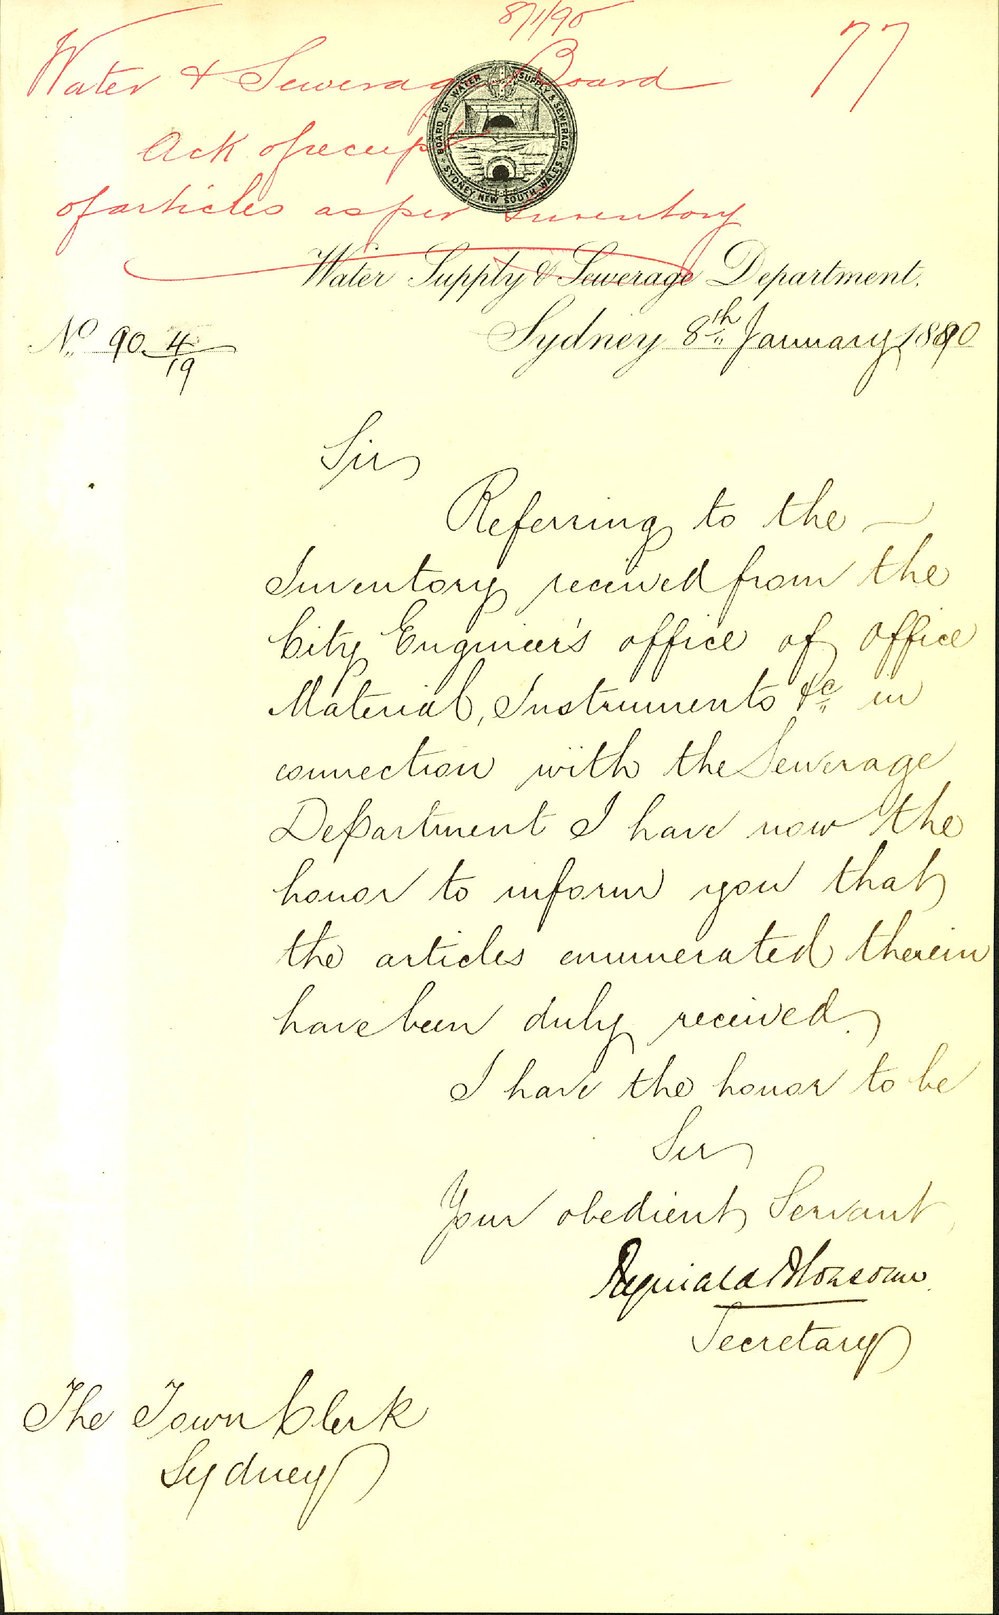 8/1/90
77
Water & Sewerage Board
Ack of receipt
of articles as per Inventory
BOARD OF WATER SUPPLY & SEWERAGE
SYDNEY NEW SOUTH WALES
Water Supply & Sewerage Department.
No 90 4/19
Sydney 8th January 1890
Sir
Referring to the
Inventory received from the
City Engineer's office of Office
Material, Instruments &c in
connection with the Sewerage
Department I have now the
honor to inform you that
the articles enumerated therein
have been duly received.
I have the honor to be
Sir
Your obedient Servant
Reginald
Secretary
The Town Clerk
Sydney